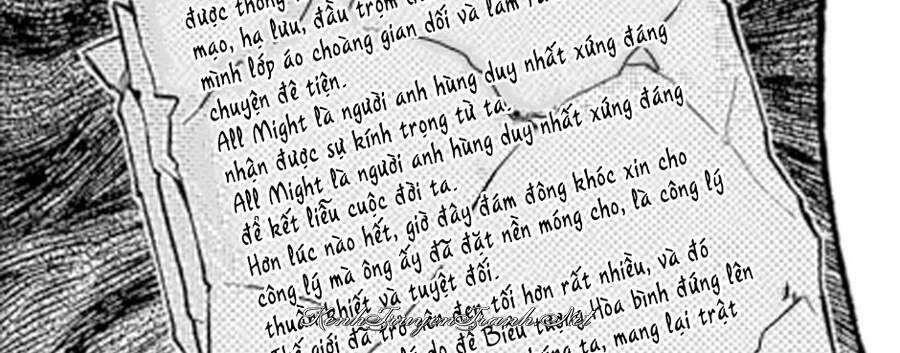 được thông
mạo, hạ lưu, đầu trộm
mình lớp áo choàng gian dối và làm
chuyện đê tiện.
All Might là người anh hùng duy nhất xứng đáng
nhận được sự kính trọng từ ta.
All Might là người anh hùng duy nhất xứng đáng
để kết liễu cuộc đời ta.
Hơn lúc nào hết, giờ đây đám đông khóc xin cho
công lý mà ông ấy đã đặt nền móng cho, là công lý
thuần khiết và tuyệt đối.
Thế giới đã trở nên đen tối hơn rất nhiều, và đó
lý do để Biểu tượng Hòa bình đứng lên
chúng ta, mang lại trật
KenhTruyenTranh.Net